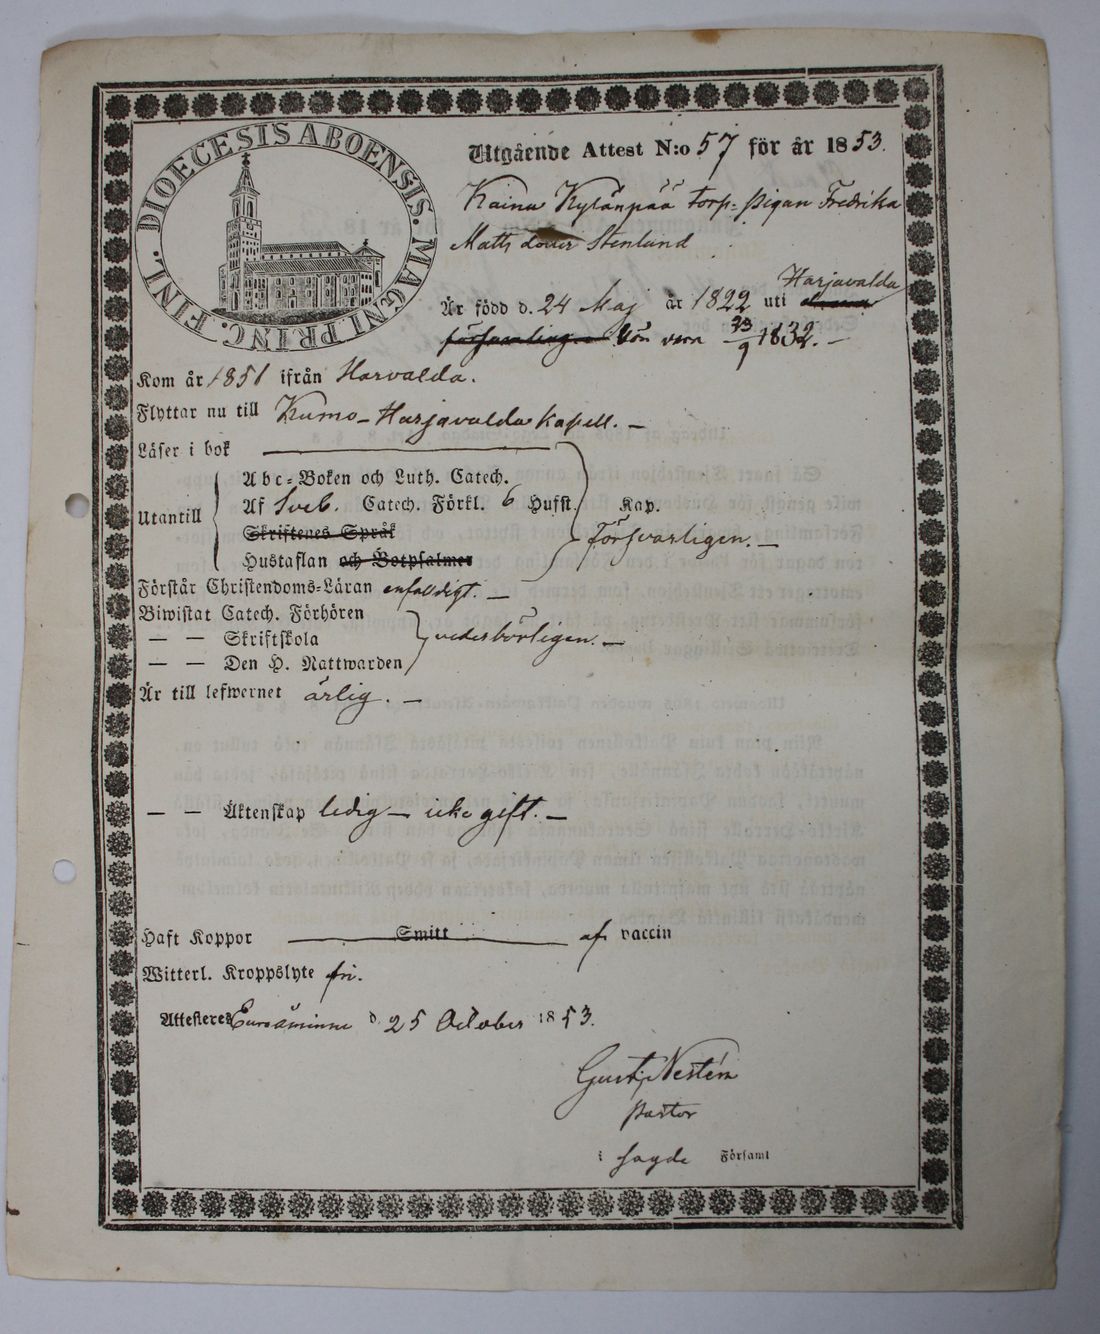 DIOECESIS ABOENSIS. MAGNI PRINC. FINL.
Utgående Attest N:o 57 för år 1853.
Kainu Kylänpää Torp-pigan Fredrika
Matts dotter Stenlund
Är född d. 24 Maj år 1822 uti Harjavalda
församling 23/9 1832.
Kom år 1851 ifrån Harvalda.
Flyttar nu till Kumo-Harjavalda Kapell.
Läser i bok
Utantill
Abc-Boken och Luth. Catech.
Af Sveb. Catech. Förkl. 6 Hufst. Kap.
Skriftenes Språk
försvarligen.
Hustaflan och Botpsalmer
Förstår Christendoms-Läran enfaldigt.
Biwistat Catech. Förhören
— — Skriftskola vederbörligen.
— — Den H. Nattwarden
Är till lefwernet ärlig.
— — Äktenskap ledig — icke gift.
Haft Koppor Smitt af vaccin
Witterl. Kroppslyte fri.
Attesteres Euraåminne d. 25 October 1853.
Gust. Nestén
Pastor
i sagde Församl